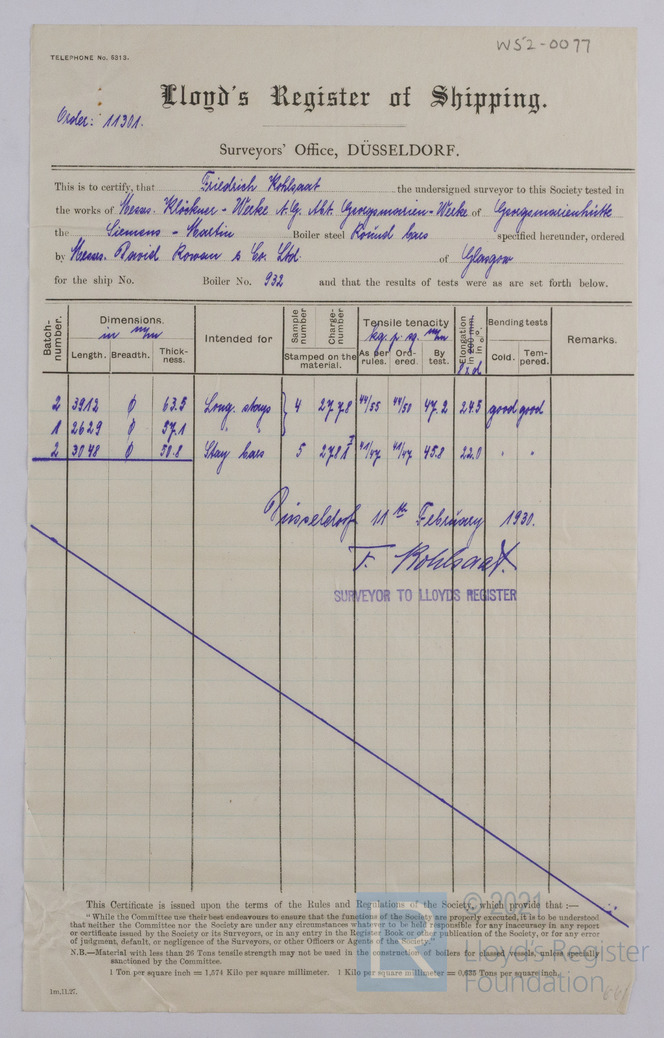 WS2-0077
TELEPHONE No. 5313.
Lloyd's Register of Shipping.
Order: 11301.
Surveyors' Office, DÜSSELDORF.
This is to certify, that Friedrich Kohlsaat the undersigned surveyor to this Society tested in
the works of Messrs. Klöckner-Werke A.G. Abt. Georgsmarien-Werke of Georgsmarienhütte
the Siemens-Martin Boiler steel Round bars specified hereunder, ordered
by Messrs. David Rowan & Co. Ltd. of Glasgow
for the ship No. Boiler No. 932 and that the results of tests were as are set forth below.
Batch-number. Dimensions. in m/m Length. Breadth. Thick-ness. Intended for Sample number Charge-number Stamped on the material. Tensile tenacity kg. p. sq. m/m As per rules. Ord-ered. By test. Elongation in 200 mm. in %. 8xd Bending tests Cold. Tem-pered. Remarks.
2 3912 φ 63.5 Long. stays 4 2778 44/55 44/50 47.2 24.5 good good
1 2629 φ 57.1 " "
2 3048 φ 50.8 Stay bars 5 2787 41/47 41/47 45.8 22.0 " "
Düsseldorf 11th February 1930.
F. Kohlsaat.
SURVEYOR TO LLOYD'S REGISTER
This Certificate is issued upon the terms of the Rules and Regulations of the Society, which provide that :—
"While the Committee use their best endeavours to ensure that the functions of the Society are properly executed, it is to be understood
that neither the Committee nor the Society are under any circumstances whatever to be held responsible for any inaccuracy in any report
or certificate issued by the Society or its Surveyors, or in any entry in the Register Book or other publication of the Society, or for any error
of judgment, default, or negligence of the Surveyors, or other Officers or Agents of the Society."
N.B.—Material with less than 26 Tons tensile strength may not be used in the construction of boilers for classed vessels, unless specially
sanctioned by the Committee.
1 Ton per square inch = 1,574 Kilo per square millimeter. 1 Kilo per square millimeter = 0,635 Tons per square inch.
1m.11.27.
R
© 2021
Lloyd's Register
Foundation